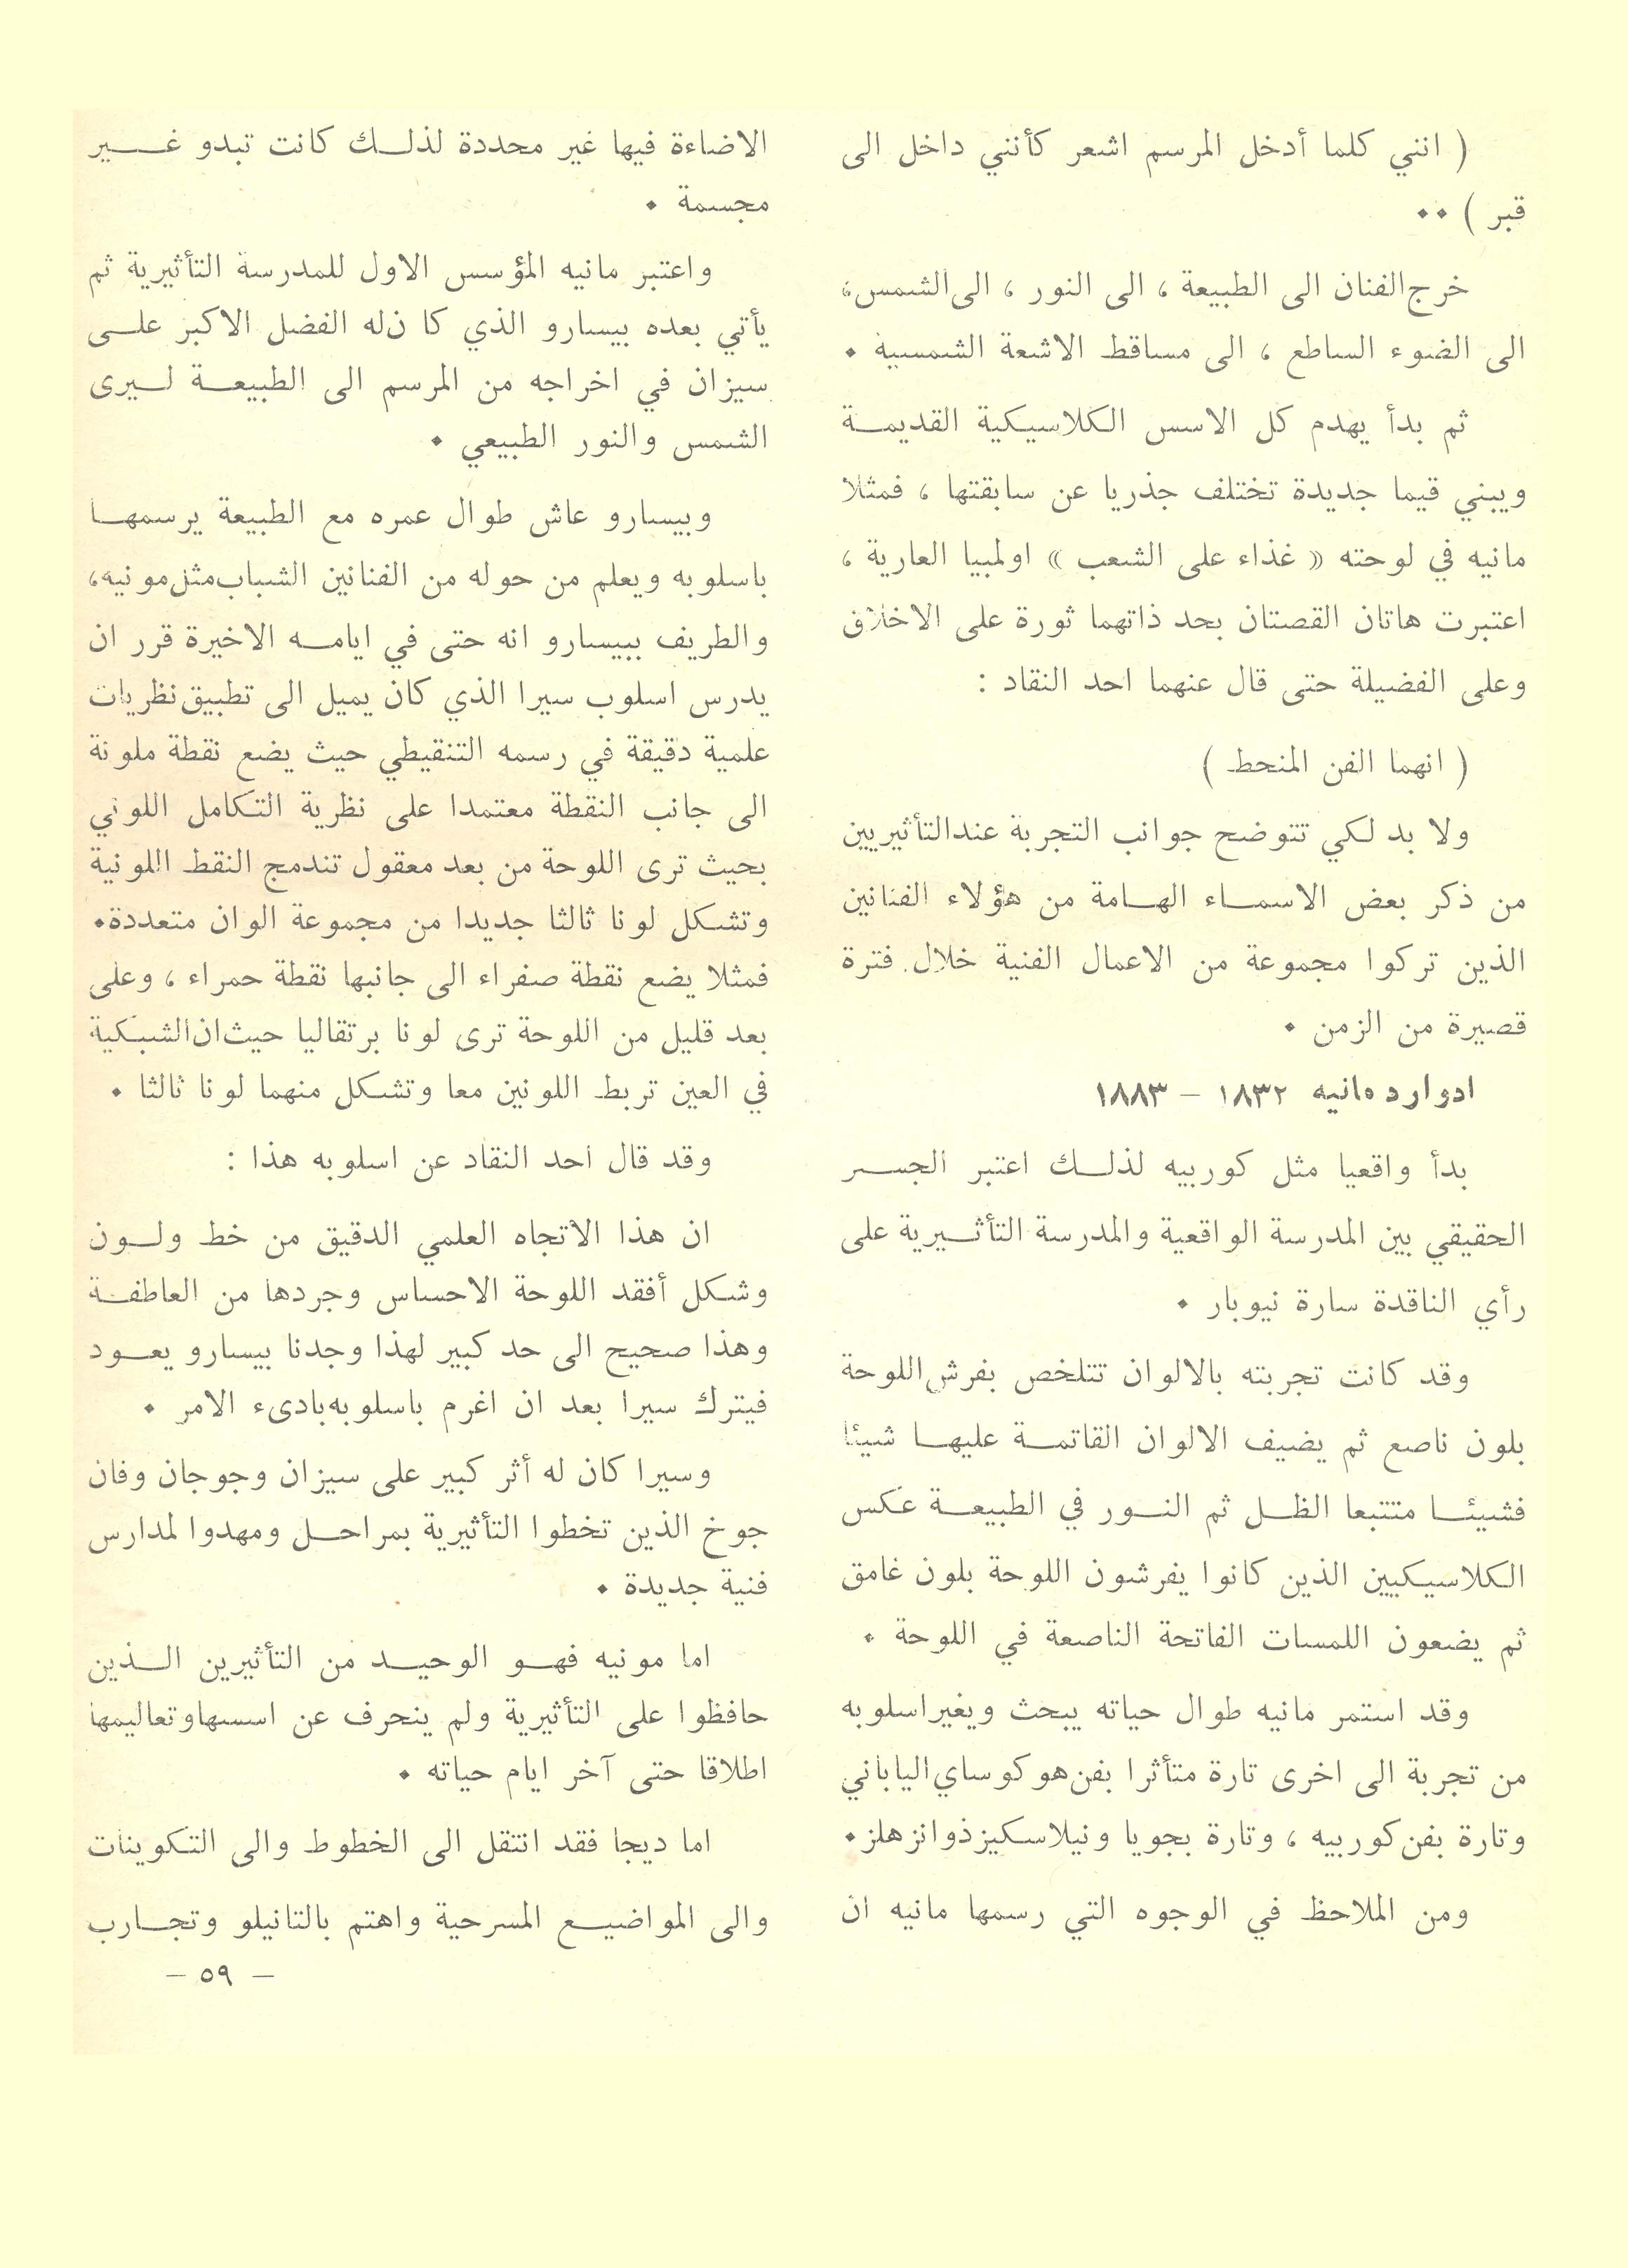 ( انني كلما أدخل المرسم اشعر كأنني داخل الى
قبر ) ٠٠
خرج الفنان الى الطبيعة ، الى النور ، الى الشمس،
الى الضوء الساطع ، الى مساقط الاشعة الشمسية ٠
ثم بدأ يهدم كل الاسس الكلاسيكية القديمة
ويبني قيما جديدة تختلف جذريا عن سابقتها ، فمثلا
مانيه في لوحته « غذاء على الشعب » اولمبيا العارية ،
اعتبرت هاتان القصتان بحد ذاتهما ثورة على الاخلاق
وعلى الفضيلة حتى قال عنهما احد النقاد :
( انهما الفن المنحط )
ولا بد لكي تتوضح جوانب التجربة عند التأثيريين
من ذكر بعض الاسماء الهامة من هؤلاء الفنانين
الذين تركوا مجموعة من الاعمال الفنية خلال فترة
قصيرة من الزمن ٠
ادوارد مانيه ١٨٣٢ – ١٨٨٣
بدأ واقعيا مثل كوربيه لذلك اعتبر الجسر
الحقيقي بين المدرسة الواقعية والمدرسة التأثيرية على
رأي الناقدة سارة نيوبار ٠
وقد كانت تجربته بالالوان تتلخص بفرش اللوحة
بلون ناصع ثم يضيف الالوان القاتمة عليها شيئا
فشيئا متتبعا الظل ثم النور في الطبيعة عكس
الكلاسيكيين الذين كانوا يفرشون اللوحة بلون غامق
ثم يضعون اللمسات الفاتحة الناصعة في اللوحة ٠
وقد استمر مانيه طوال حياته يبحث ويغير اسلوبه
من تجربة الى اخرى تارة متأثرا بفن هوكوساي الياباني
وتارة بفن كوربيه ، وتارة بجويا ونيلاسكيز ذوانز هلز ٠
ومن الملاحظ في الوجوه التي رسمها مانيه ان
الاضاءة فيها غير محددة لذلك كانت تبدو غير
مجسمة ٠
واعتبر مانيه المؤسس الاول للمدرسة التأثيرية ثم
يأتي بعده بيسارو الذي كا ن له الفضل الاكبر على
سيزان في اخراجه من المرسم الى الطبيعة ليرى
الشمس والنور الطبيعي ٠
وبيسارو عاش طوال عمره مع الطبيعة يرسمها
باسلوبه ويعلم من حوله من الفنانين الشباب مثل مونيه،
والطريف ببيسارو انه حتى في ايامه الاخيرة قرر ان
يدرس اسلوب سيرا الذي كان يميل الى تطبيق نظريات
علمية دقيقة في رسمه التنقيطي حيث يضع نقطة ملونة
الى جانب النقطة معتمدا على نظرية التكامل اللوني
بحيث ترى اللوحة من بعد معقول تندمج النقط اللونية
وتشكل لونا ثالثا جديدا من مجموعة الوان متعددة٠
فمثلا يضع نقطة صفراء الى جانبها نقطة حمراء ، وعلى
بعد قليل من اللوحة ترى لونا برتقاليا حيث ان الشبكية
في العين تربط اللونين معا وتشكل منهما لونا ثالثا ٠
وقد قال احد النقاد عن اسلوبه هذا :
ان هذا الاتجاه العلمي الدقيق من خط ولون
وشكل أفقد اللوحة الاحساس وجردها من العاطفة
وهذا صحيح الى حد كبير لهذا وجدنا بيسارو يعود
فيترك سيرا بعد ان اغرم باسلوبه بادىء الامر ٠
وسيرا كان له أثر كبير على سيزان وجوجان وفان
جوخ الذين تخطوا التأثيرية بمراحل ومهدوا لمدارس
فنية جديدة ٠
اما مونيه فهو الوحيد من التأثيرين الذين
حافظوا على التأثيرية ولم ينحرف عن اسسها وتعاليمها
اطلاقا حتى آخر ايام حياته ٠
اما ديجا فقد انتقل الى الخطوط والى التكوينات
والى المواضيع المسرحية واهتم بالتانيلو وتجارب
– ٥٩ –